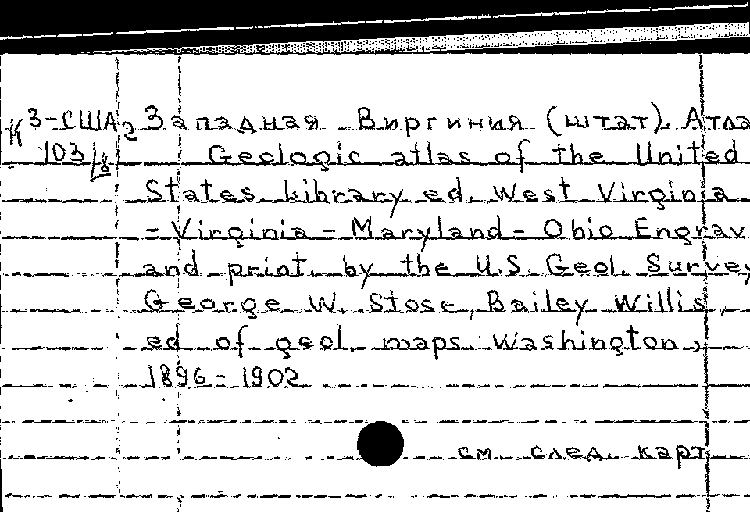 К 3-США Западная Виргиния (штат). Атла
103/ Geologic atlas of the United
States. Library ed. West Virginia
- Virginia - Maryland - Ohio Engrav
and print. by the U.S. Geol. Survey
George W. Stose, Bailey Willis,
ed of geol. maps. Washington,
1896-1902
см. след. карт